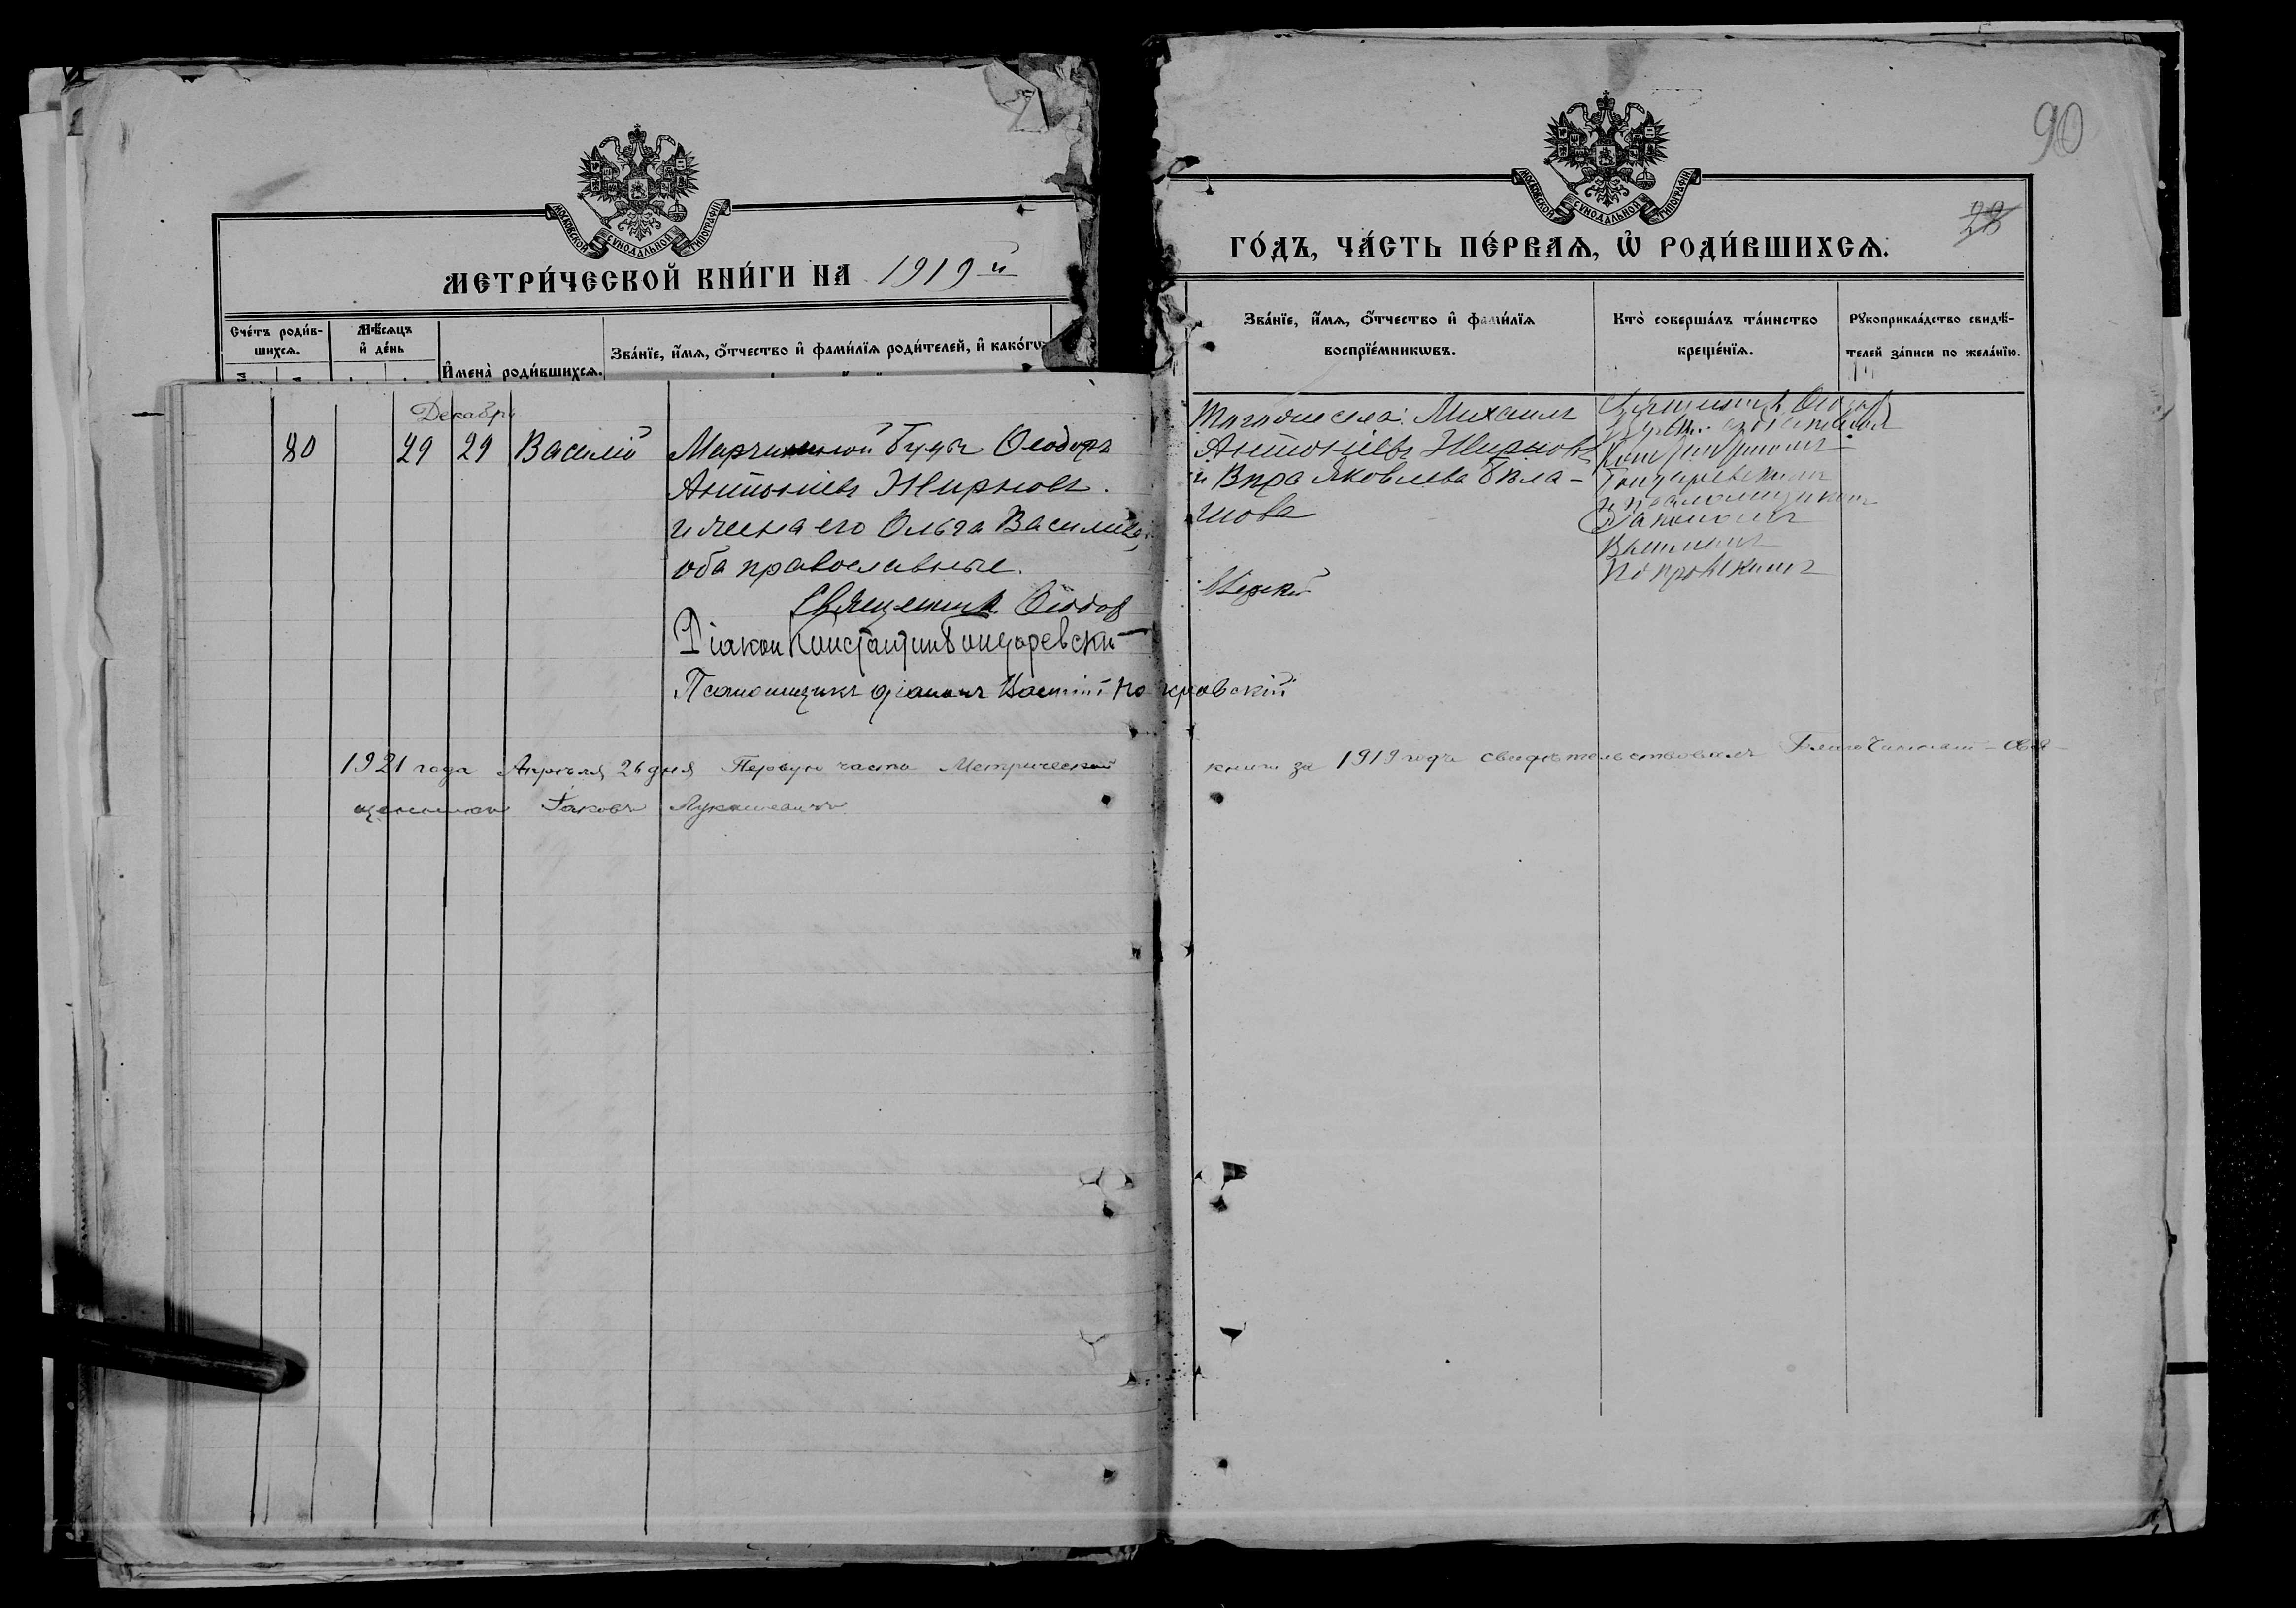 90
28
МОСКОВСКОЙ СѴНОДАЛЬНОЙ ТИПОГРАФІИ
МЕТРИ́ЧЕСКОЙ КНИ́ГИ НА 1919 й
Сче́тъ роди́в-
шихсѧ.
Мѣ́сѧцъ
и҆ де́нь
И҆мена̀ роди́вшихсѧ.
Зва́нїе, и҆́мѧ, ѻ҆́тчество и҆ фами́лїѧ роди́телей, и҆ како́гѡ
Декабрь
80 29 29 Василій
Марчихиной Буды Ѳеодоръ
Антоніевъ Жирновъ.
и жена его Ольга Василіева,
оба православные.
Священник Ѳеодор
Діакон Константин Гондаревскі
Псаломщикъ діаконъ Василій Покровскій
1921 года Апрѣля 26 дня Первую часть Метрической
книги за 1919 годъ свидѣтельствовалъ Благочинный – Свя-
щенникъ Іаковъ Лукашевичъ
МОСКОВСКОЙ СѴНОДАЛЬНОЙ ТИПОГРАФІИ
ГО́ДЪ, ЧА́СТЬ ПЕ́РВАѦ, Ѽ РОДИ́ВШИХСѦ.
Зва́нїе, и҆́мѧ, ѻ҆́тчество и҆ фами́лїѧ
воспрїе́мникѡвъ.
Кто̀ соверша́лъ та́инство
креще́нїѧ.
Рꙋкоприкла́дство свидѣ́-
телей за́писи по жела́нїю.
того же села: Михаилъ
Антоніевъ Жирновъ
и Вѣра Яковлева Бѣла-
шова
Священник Ѳеодор
Константиномъ
Гондаревскимъ
и псаломщикомъ
Діакономъ
Василіемъ
Покровскимъ